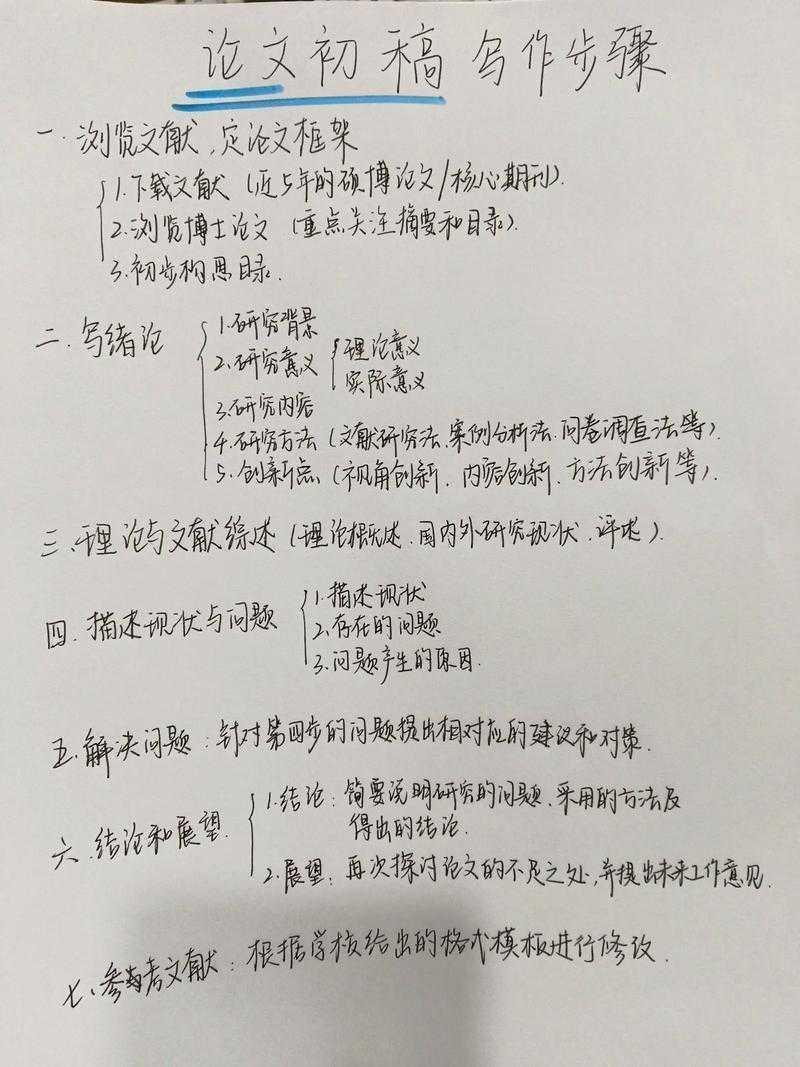 论文初稿写作步骤
一.浏览文献,定论文框架
1.下载文献(近5年的硕博论文/核心期刊).
2.浏览博士论文(重点关注摘要和目录).
3.初步构思目录.
二.写绪论
1.研究背景
2.研究意义
理论意义
实际意义
3.研究内容
4.研究方法(文献研究法、案例分析法、问卷调查法等)
5.创新点(视角创新、内容创新、方法创新等).
三、理论与文献综述(理论概述、国内外研究现状、评述).
四.描述现状与问题
1.描述现状
2.存在的问题
3.问题产生的原因.
五.解决问题:针对第四步的问题提出相对应的建议和对策.
六.结论和展望.
1.结论:简要说明研究的问题、采用的方法及
得出的结论.
2.展望:再次探讨论文的不足之处,并提出未来工作意见.
七、参考文献:根据学校给出的格式模板进行修改.